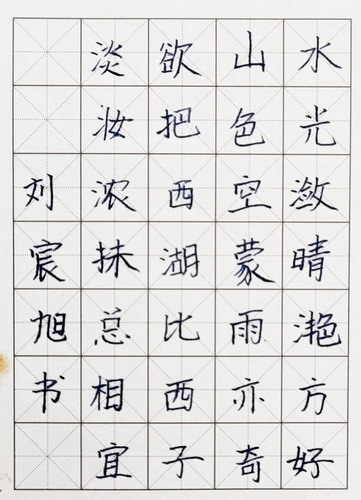 水光潋晴滟方好
山色空蒙雨亦奇
欲把西湖比西子
淡妆浓抹总相宜
刘宸旭书